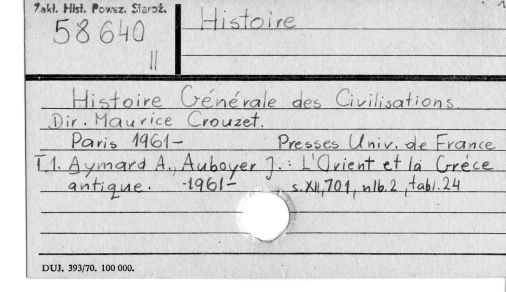 Zakł. Hist. Powsz. Staroż.
58640
II
Histoire
1
Histoire Générale des Civilisations.
Dir. Maurice Crouzet.
Paris 1961- Presses Univ. de France
T.1. Aymard A., Auboyer J. : L'Orient et la Grèce
antique. -1961- s. XII, 701, nlb. 2, tabl. 24
DUJ. 393/70. 100 000.